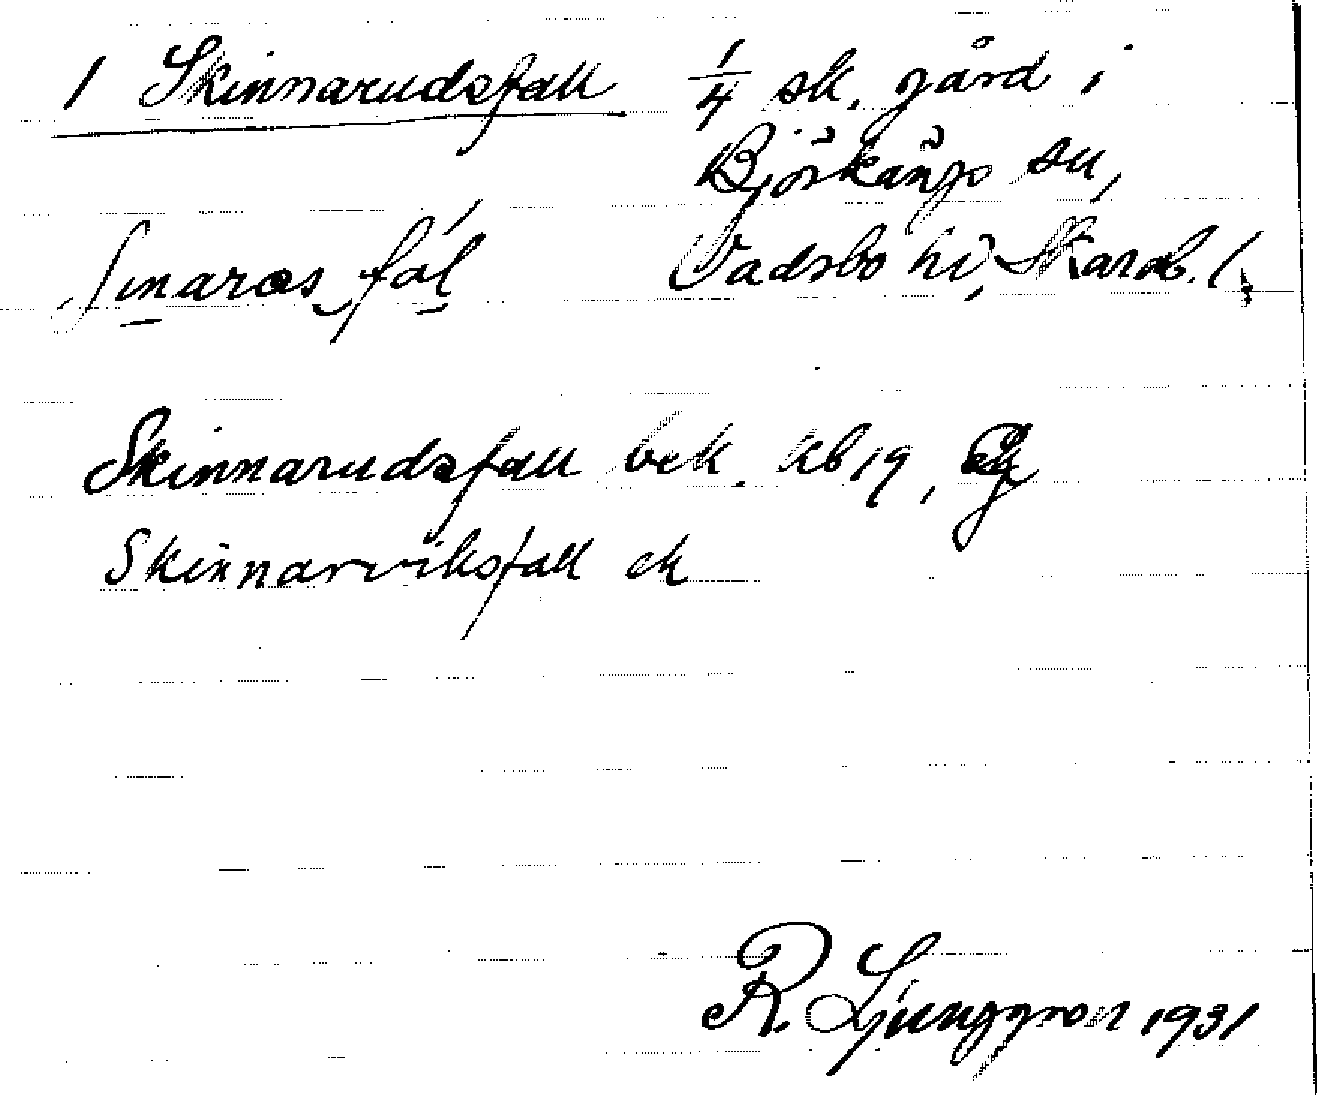 1 Skinnarudsfall 1/4 sk. gård i
Björkängs sn,
Vadsbo hd, Skarab. l.
ʃinaras fal
Skinnarudsfall bek. kb 19,
Skinnarviksfall ek
R. Ljunggren 1931